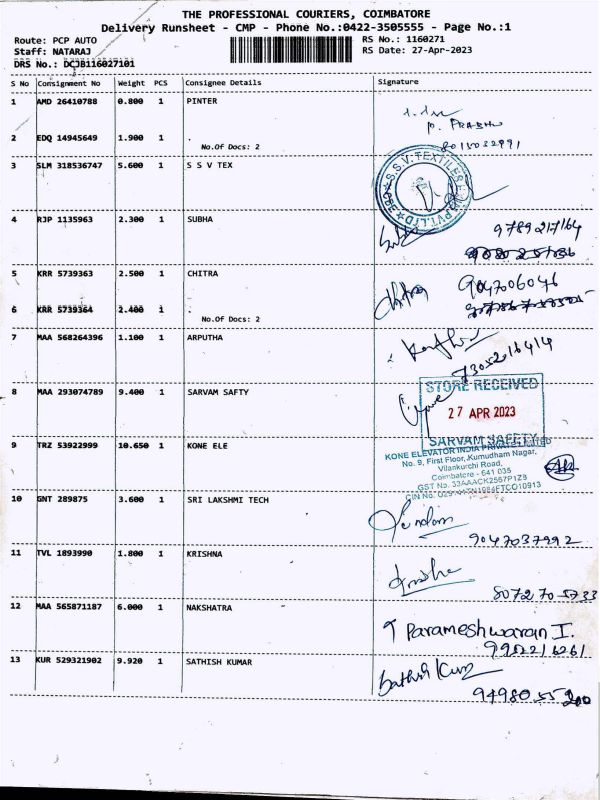 THE PROFESSIONAL COURIERS, COIMBATORE
Delivery Runsheet - CMP - Phone No.:0422-3505555 - Page No.:1
Route: PCP AUTO
RS No.: 1160271
Staff: NATARAJ
RS Date: 27-Apr-2023
DRS No.: DCJB116027101
S No Consignment No Weight PCS Consignee Details Signature
1 AMD 26410788 0.800 1 PINTER
P. PRABHU
2 EDQ 14945649 1.900 1
8015032991
No.Of Docs: 2
3 SLM 318536747 5.600 1 S S V TEX
S.S.V. TEXTILES PVT. LTD
4 RJP 1135963 2.300 1 SUBHA
9789217164
5 KRR 5739363 2.500 1 CHITRA
Chitra 9047006046
6 KRR 5739364 2.400 1
No.Of Docs: 2
7 MAA 568264396 1.100 1 ARPUTHA
7305216414
STORE RECEIVED
8 MAA 293074789 9.400 1 SARVAM SAFTY
27 APR 2023
SARVAM SAFETY
9 TRZ 53922999 10.650 1 KONE ELE
KONE ELEVATOR INDIA PRIVATE LIMITED
No. 9, First Floor, Kumudham Nagar,
Vilankurchi Road,
Coimbatore - 641 035
GST No. 33AAACK2567P1ZB
CIN No.
10 GNT 289875 3.600 1 SRI LAKSHMI TECH
9047037992
11 TVL 1893990 1.800 1 KRISHNA
8072705733
12 MAA 565871187 6.000 1 NAKSHATRA
T Parameshwaran I.
13 KUR 529321902 9.920 1 SATHISH KUMAR
Sathish Kumar